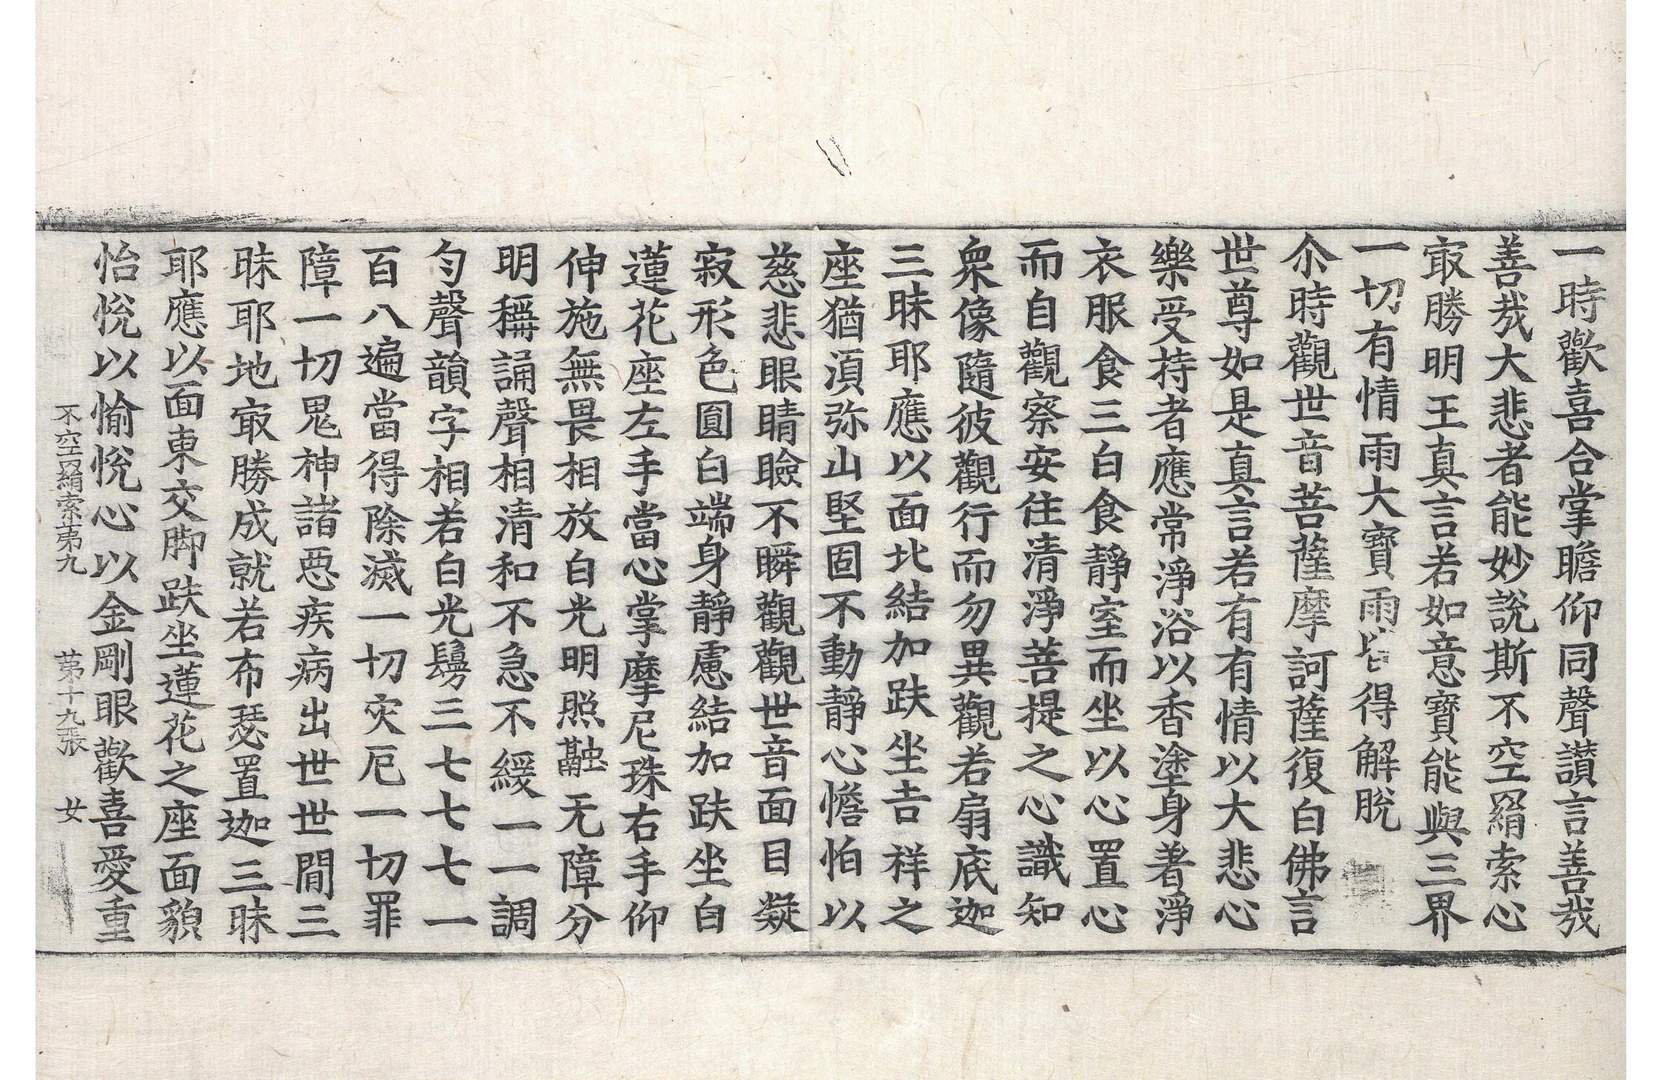 一時歡喜合掌瞻仰同聲讃言善㢤
善㢤大悲者能妙說斯不空羂索心
㝡勝明王真言若如意寶能與三界
一切有情雨大寶雨皆得解脫
尒時觀世音菩薩摩訶薩復白佛言
世尊如是真言若有有情以大悲心
樂受持者應常淨浴以香塗身著淨
衣服食三白食靜室而坐以心置心
而自觀察安住清淨菩提之心識知
衆像隨彼觀行而勿異觀若扇底迦
三昧耶應以面北結加趺坐吉祥之
座猶湏弥山堅固不動靜心憺怕以
慈悲眼睛瞼不瞬觀觀世音面目凝
寂形色圓白端身靜慮結加趺坐白
蓮花座左手當心掌摩尼珠右手仰
伸施無畏相放白光明照融无障分
明稱誦聲相清和不急不緩一一調
勻聲韻字相若白光鬘三七七七一
百八遍當得除滅一切灾厄一切罪
障一切鬼神諸惡疾病出世世間三
昧耶地㝡勝成就若布瑟置迦三昧
耶應以面東交脚趺坐蓮花之座面貌
怡悅以愉悅心以金剛眼歡喜愛重
不空羂索苐九 苐十九張 女